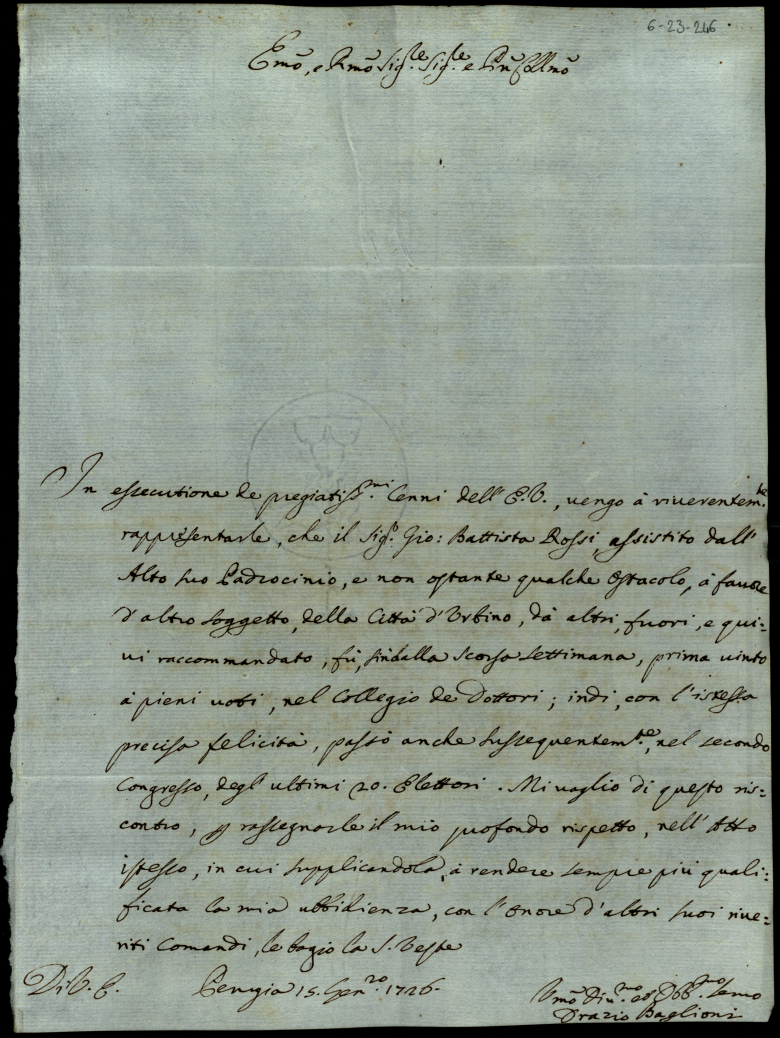 6-23-246
Emõ, e Rmõ Sig.re Sig.re e Prñ Collmõ
In essecutione de pregiatiss.mi Cenni dell'E.V., vengo à riverentem.te
rappresentarle, che il Sig.r Gio: Battista Rossi, assistito dall'
Alto suo Padrocinio, e non ostante qualche Ostacolo, à favore
d'altro soggetto, della Città d'Urbino, dà altri, fuori, e qui-
vi raccommandato, fù, sindalla scorsa settimana, prima vinto
à pieni voti, nel Collegio de Dottori; indi, con l'istessa
precisa felicità, passò anche sussequentem.te, nel secondo
Congresso, degl'ultimi 20. Elettori. Mi vaglio di questo ris-
contro, per rassegnarle il mio profondo rispetto, nell'Atto
istesso, in cui supplicandola, à rendere sempre più quali-
ficata la mia ubbidienza, con l'Onore d'altri suoi rive-
riti Comandi, le bagio la S. Veste
Di V. E. Perugia 15. Gen.ro 1726.
Umõ Div.mo ed Obb.mo Servo
Orazio Baglioni